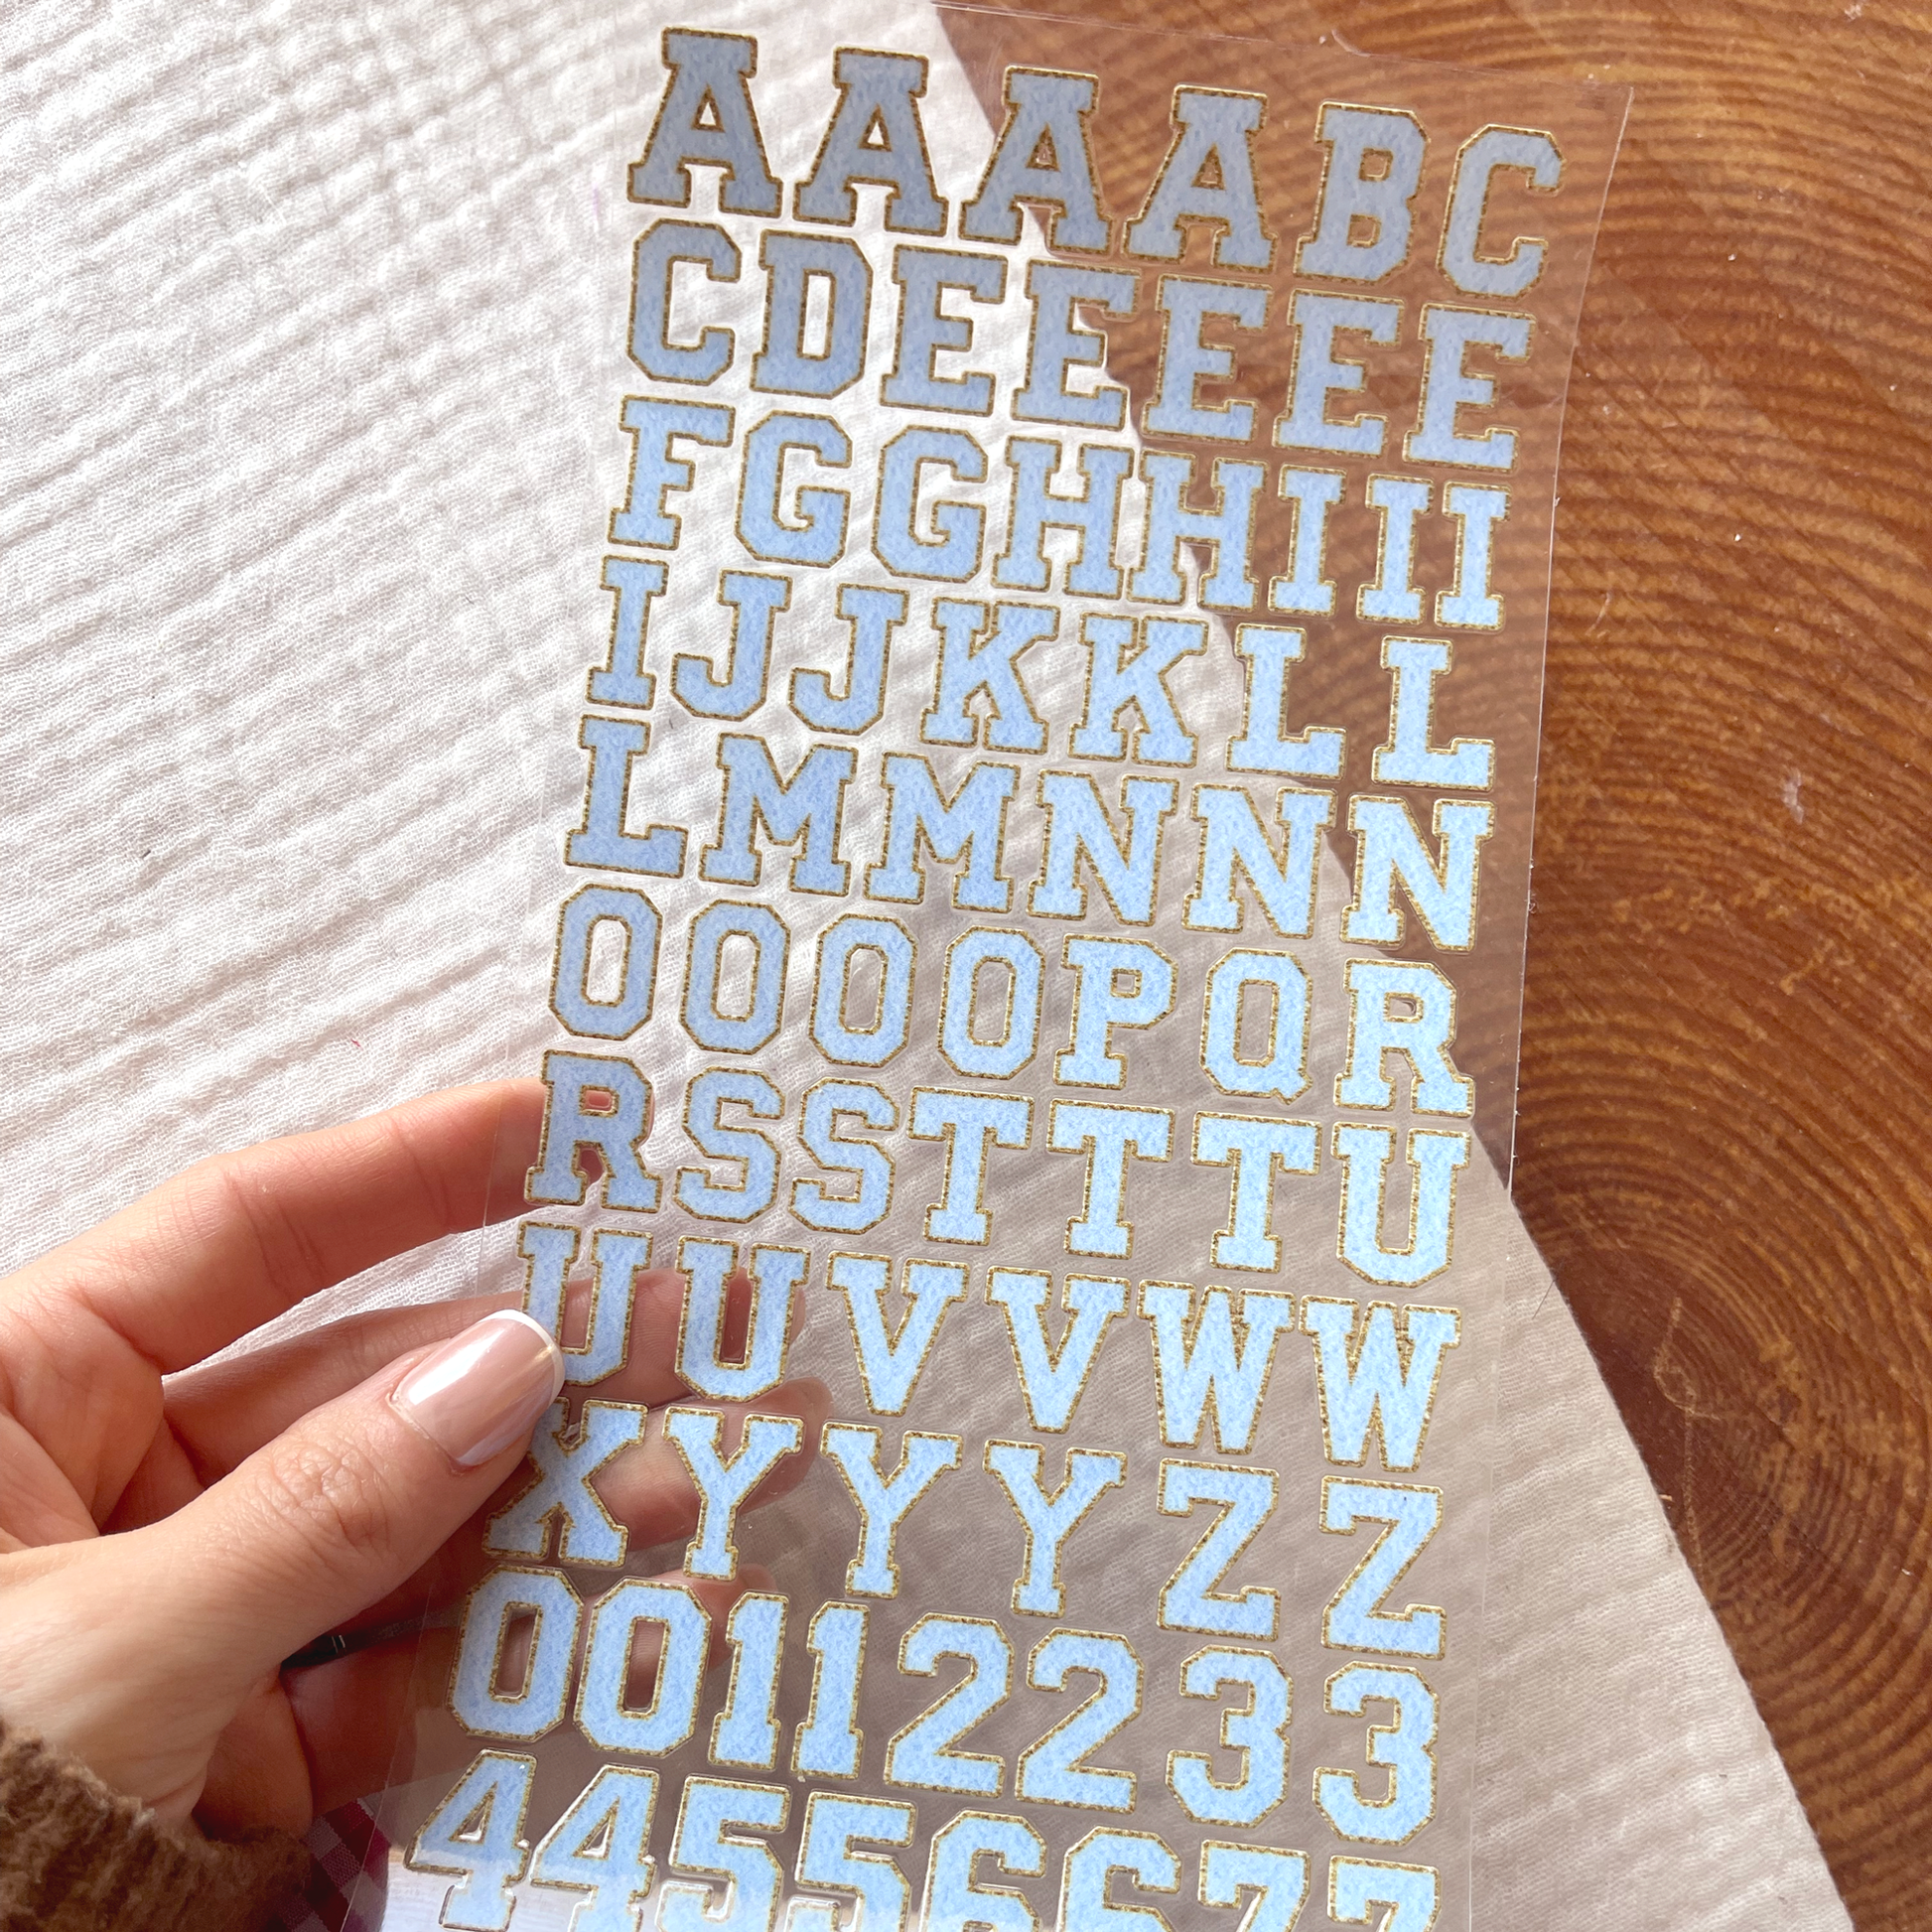 AAAABC
CDEEEEE
FGGHHIII
IJJKKLL
LMMNNN
OOOOPQR
RSSTTTU
UUVVWW
XYYYZZ
00112233
44556677